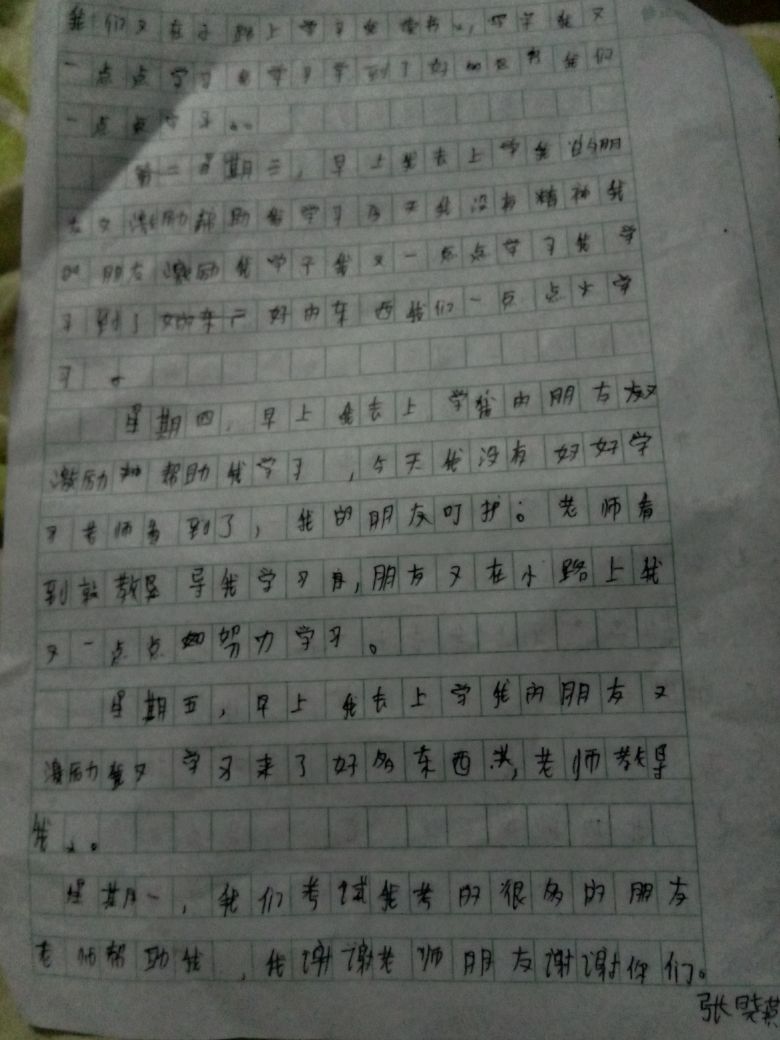 我们又在小路上学习我读书,写字我又
一点点学习我学习学到了好的东西我们
一点点学习。
第二星期三,早上我去上学我的朋
友又激励帮助我学习今天我没有精神我
的朋友激励我学习我又一点点学习我学
习到了好的东西我们一点点大学
习。
星期四,早上我去上学我的朋友又
激励和帮助我学习,今天我没有好好学
习老师看到了,我的朋友叮护。老师看
到就教导我学习,朋友又在小路上我
又一点点努力学习。
星期五,早上我去上学我的朋友又
激励我又学习来了好多东西,老师教导
我。
星期一,我们考试我考的很多的朋友
老师帮助我,我谢谢老师朋友谢谢你们。
张晓